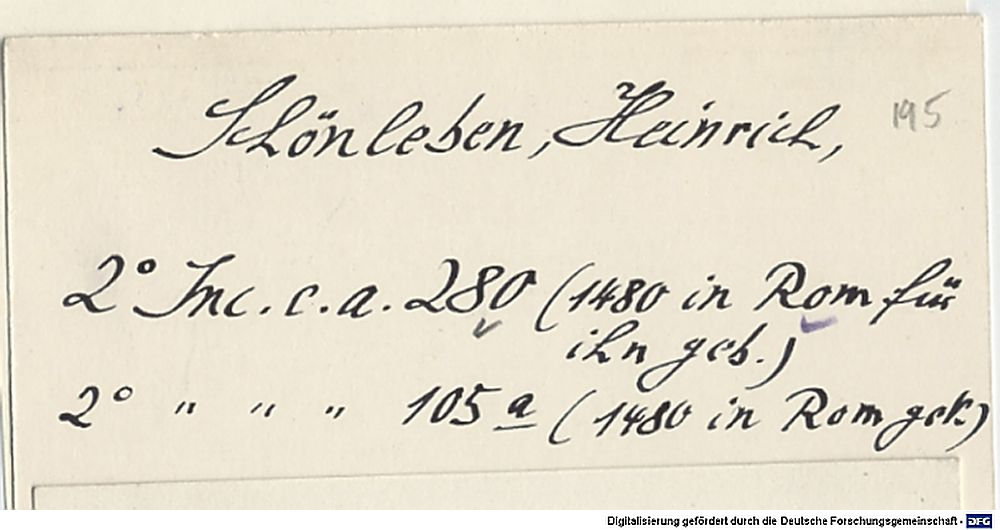 Schönleben, Heinrich, 195
2° Inc. c. a. 280 (1480 in Rom für
ihn geb.)
2° " " " 105 a (1480 in Rom gek.)
Digitalisierung gefördert durch die Deutsche Forschungsgemeinschaft - DFG